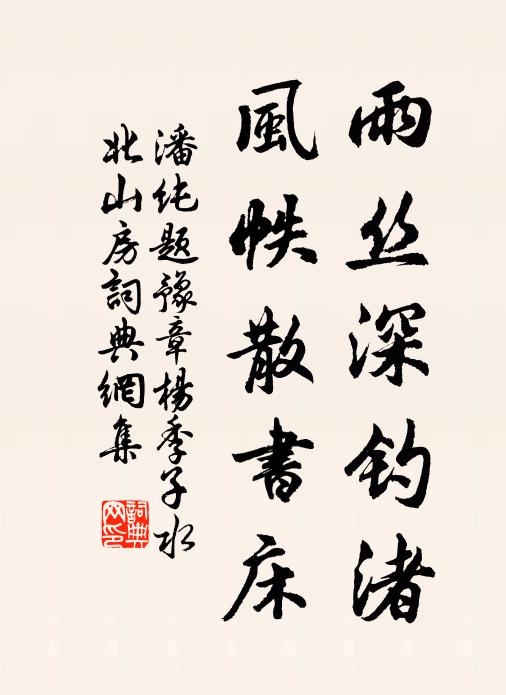 雨丝深钓渚
風帙散書床
潘纯题豫章楊季子水
北山房詞典網集
詞典
网印